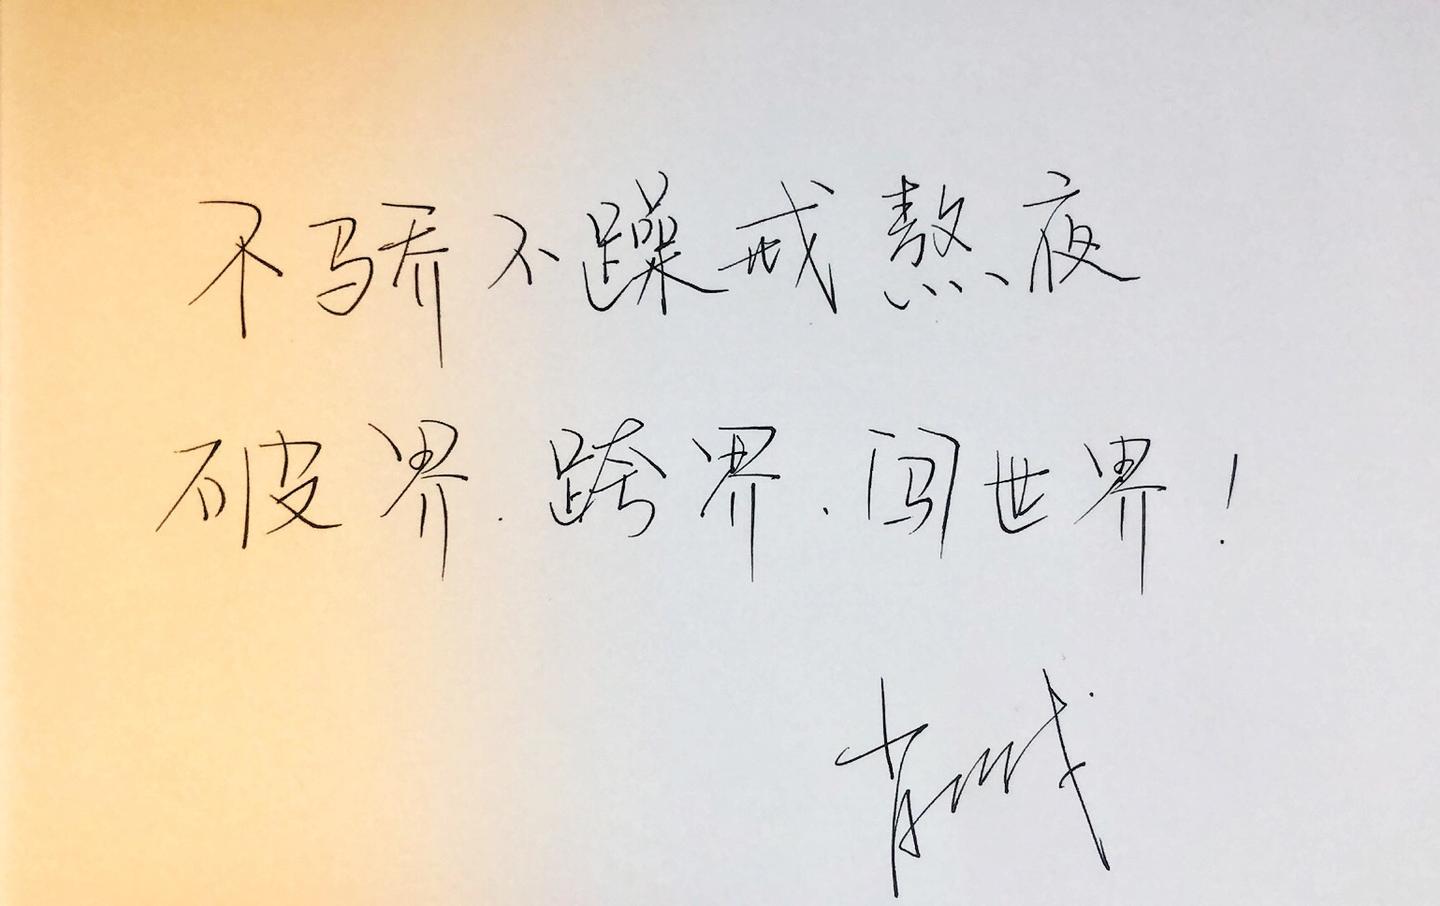 不骄不躁戒熬夜
破界.跨界.闯世界!